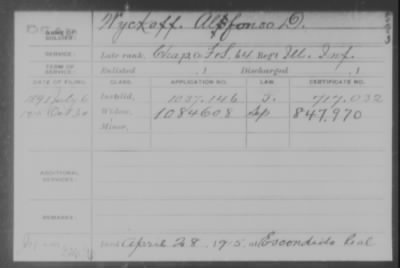 NAME OF SOLDIER: Wyckoff, Alphonso D.
SERVICE: Late rank, Chap. F&S, 64 Reg't Ill. Inf.
TERM OF SERVICE: Enlisted , 1 Discharged , 1
DATE OF FILING. CLASS. APPLICATION NO. LAW. CERTIFICATE NO.
1891 July 6 Invalid, 1037.146 717.032
Oct Widow, 1084608 847,970
Minor,
ADDITIONAL SERVICES:
REMARKS:
April 28, 1915 at Escondido Cal